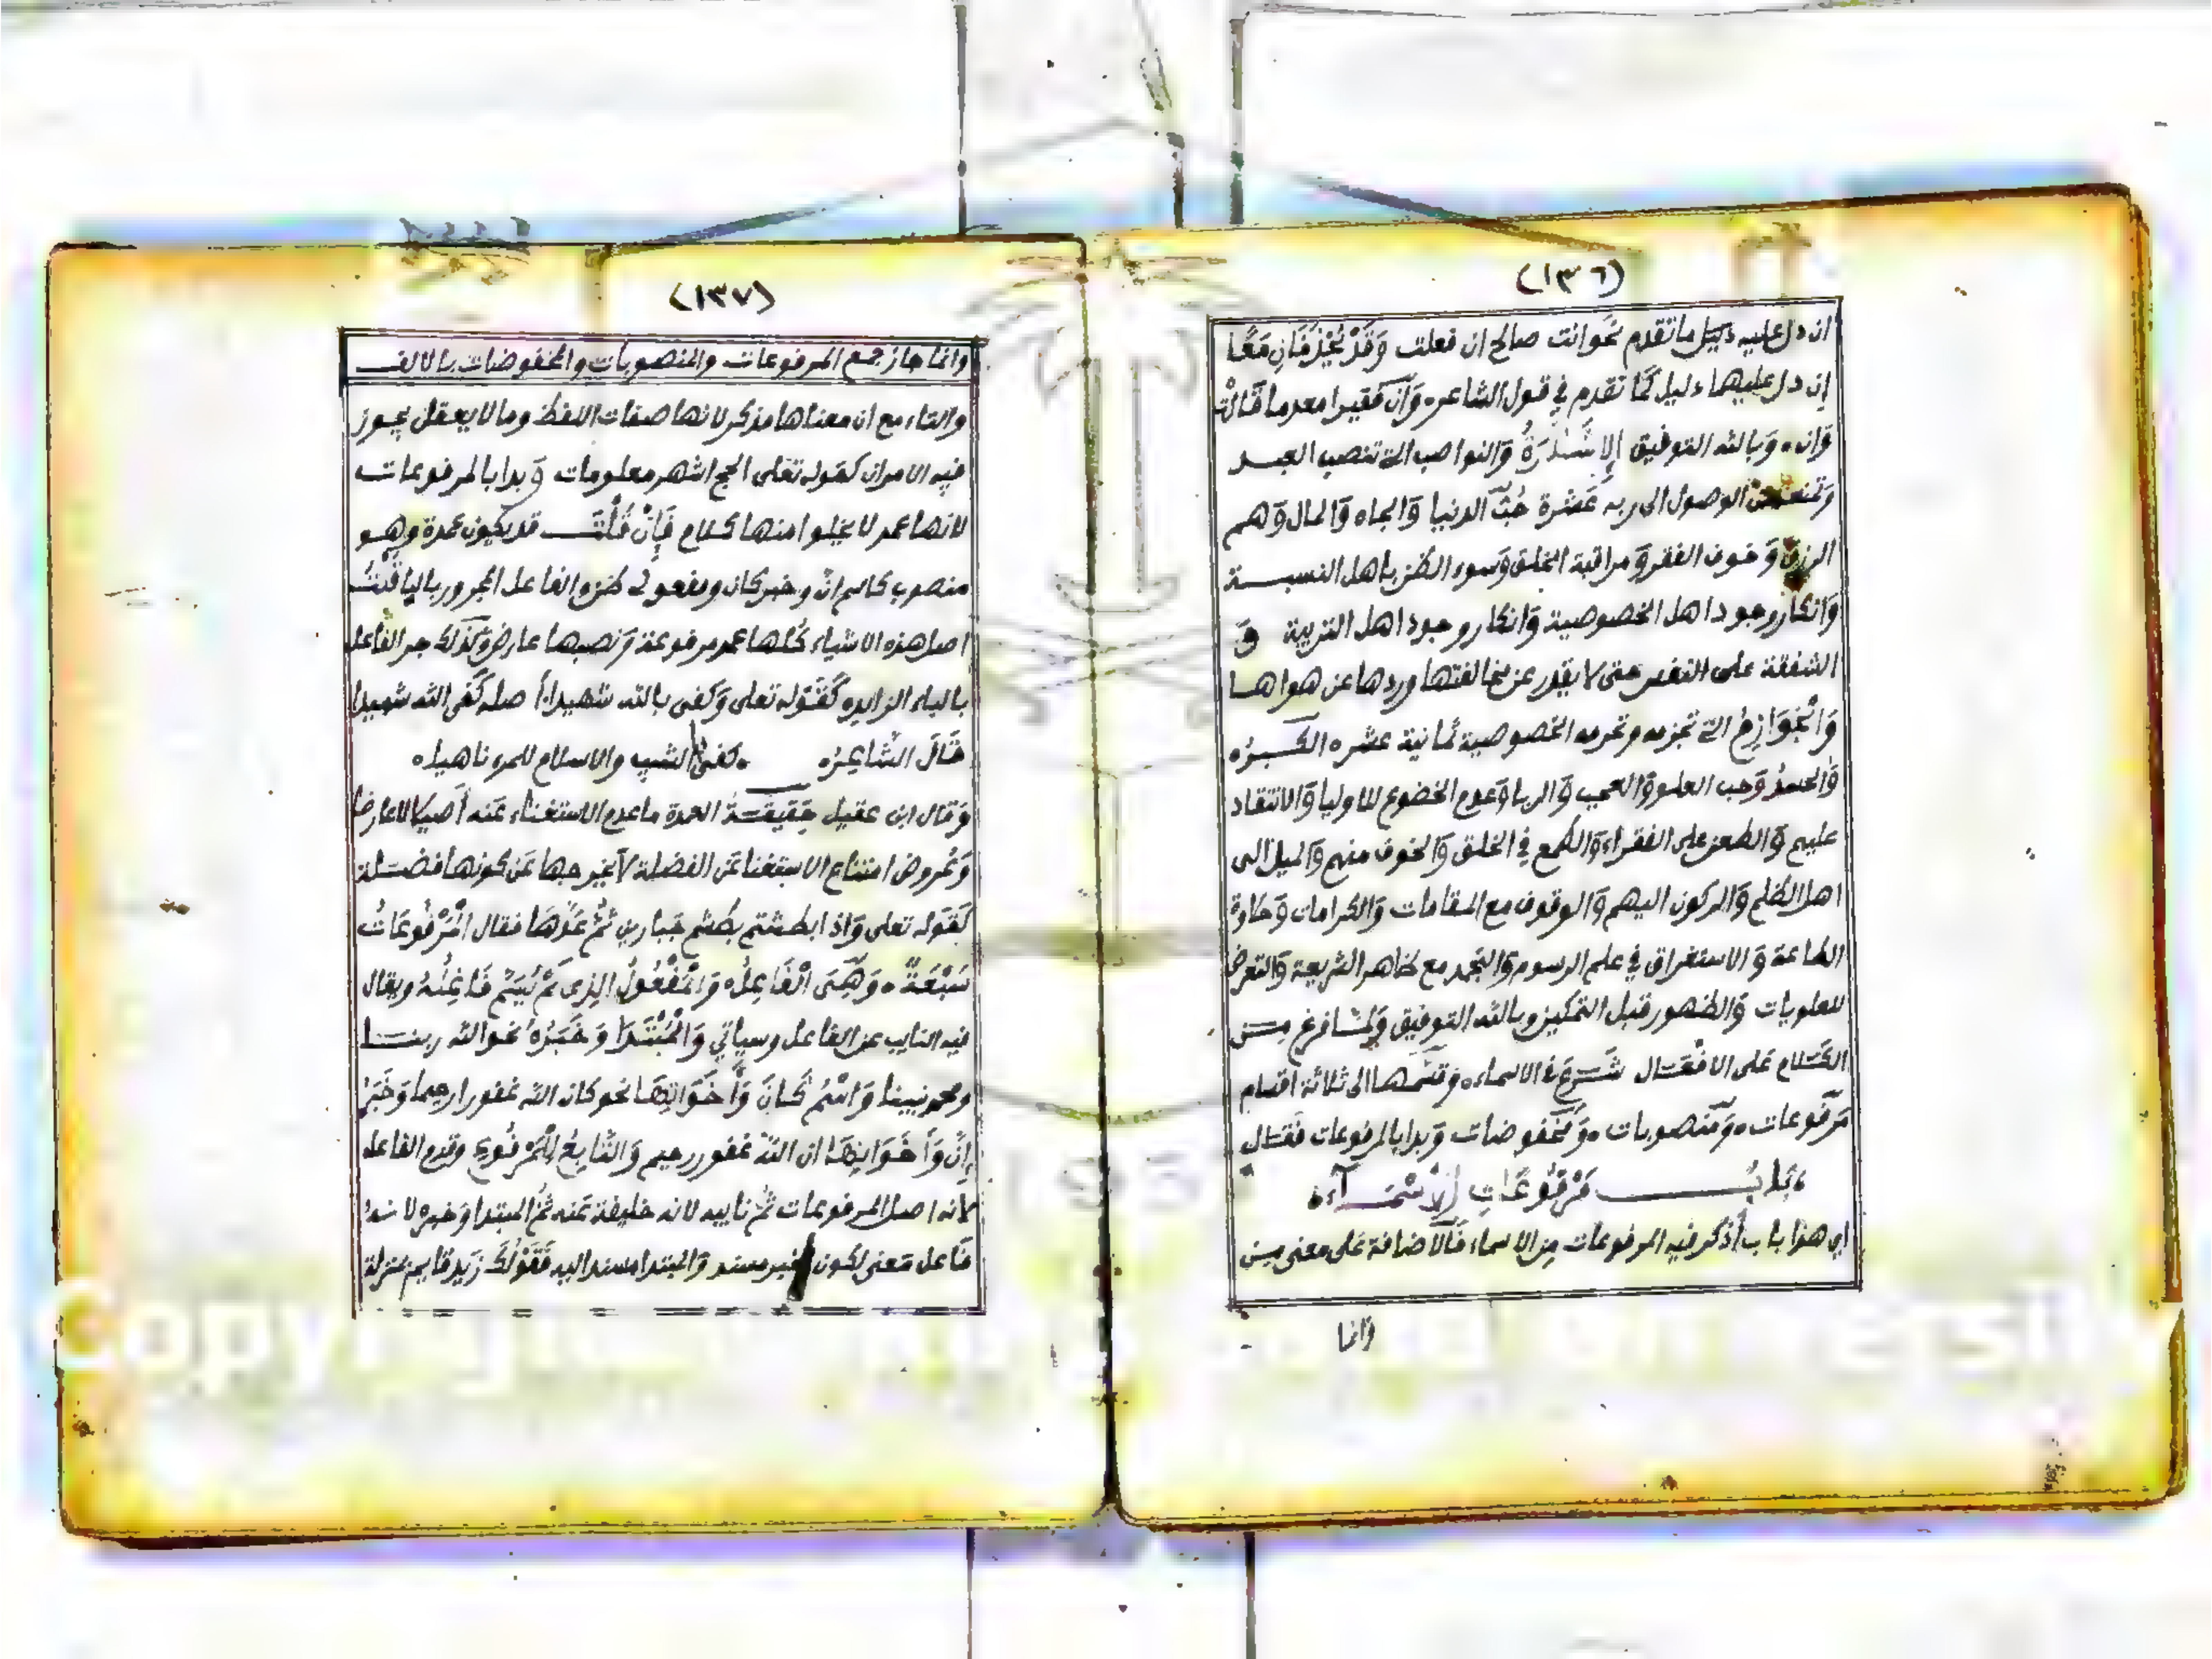 (١٣٦)
ان دل عليه دليل ما تقدم نحو انت صالح ان فعلت وَقَدْ يُحْذَفَانِ مَعًا
إن دل عليهما دليل كما تقدم في قول الشاعر وَان فقيرا معدما قالت
وَان وَبالله التوفيق الإشَارَةُ وَالنواصب التي تنصب العبد
وتمنعه من الوصول الى ربه عَشرة حُبّ الدنيا وَالجاه وَالمال وَهم
الرزق وَخوف الفقر وَمراقبة الخلق وَسوء الظن باهل النسبة
وَانكار وجود اهل الخصوصية وَانكار وجود اهل التربية وَ
الشفقة على النفس حتى لا يقدر عن مخالفتها وردها عن هواها
وَالْجَوَازِمُ التي تجزمه وتحرمه الخصوصية ثمانية عشره الكبرُ
وَالحسدُ وَحب العلو وَالعجب وَالريا وَعدم الخضوع للاوليا وَالانتقاد
عليهم وَالطعن على الفقراء وَالطمع في الخلق وَالخوف منهم وَالميل الى
اهل الظلم وَالركون اليهم وَالوقوف مع المقامات وَالكرامات وَحلاوة
الطاعة وَالاستغراق في علم الرسوم وَالتجمد مع ظاهر الشريعة وَالتعرض
للعلويات وَالظهور قبل التمكين وبالله التوفيق وَلمّا فرغ من
الكلام عَلى الافعَال شَرَعَ في الاسماء وقسَّمها الى ثلاثة اقسام
مَرفوعات وَمَنصوبات وَمَخفوضات وَبدا بالمرفوعات فقال
بَابُ مَرْفُوعَاتِ الأَسْمَآءِ
اي هذا باب أذكر فيه المرفوعات من الاسماء فَالاضافة عَلى معنى من
وَانما
(١٣٧)
وانما جاز جمع المرفوعات والمنصوبات والمخفوضات بالالف
والتاء مع ان معناها مذكر لانها صفات اللفظ وما لا يعقل يجوز
فيه الامران كقوله تعَلى الحج اشهر معلومات وَبدا بالمرفوعات
لانها عمد لا يخلوا منها كلام فَإِنْ قُلْتَ قد يكون عمدة وهو
منصوب كاسم انّ وخبر كان ومفعولي ظن والفاعل المجرور باليا قُلْتُ
اصل هذه الاشياء كُلها عمد مرفوعة وَنصبها عارض وَكذلك جر الفاعل
بالباء الزايده كَقَوله تعلى وَكفى بالله شهيدا أصله كَفى الله شهيدا
قَالَ الشَّاعِرُ كفى الشيب والاسلام للمرء ناهيا
وَقال ابن عقيل حَقيقَةُ العمدة ما عدم الاستغناء عَنه أصيلا لا عارضا
وَعُروض امتناع الاستغنا عَن الفضلة لا يخرجها عَن كونها فضلة
كقَوله تعلى وَاذا بطشتم بطشتم جَبارين ثُمَّ عَدَّهَا فقال الْمَرْفُوعَاتُ
سَبْعَةٌ وَهِيَ الْفَاعِلُ وَالْمَفْعُولُ الذِى لَمْ يُسَمَّ فَاعِلُهُ ويقال
فيه النايب عن الفاعل وسياتي وَالْمُبْتَدَا وَخَبَرُهُ نحو الله ربنا
ومحمد نبينا وَاسْمُ كَانَ وَأَخَوَاتِهَا نحو كان الله غفورا رحيما وَخَبَرُ
إنَّ وَأَخَوَاتِهَا ان الله غفور رحيم وَالتَّابِعُ لِلْمَرْفُوعِ وقدم الفاعل
لانه اصل المرفوعات ثُم نايبه لانه خليفة عَنه ثُمَّ المبتدا وَخبره لانه
فَاعل مَعنى لكون الخبر مسند وَالمبتدا مسند اليه فَقَوْلُكَ زيد قايم بمنزلة